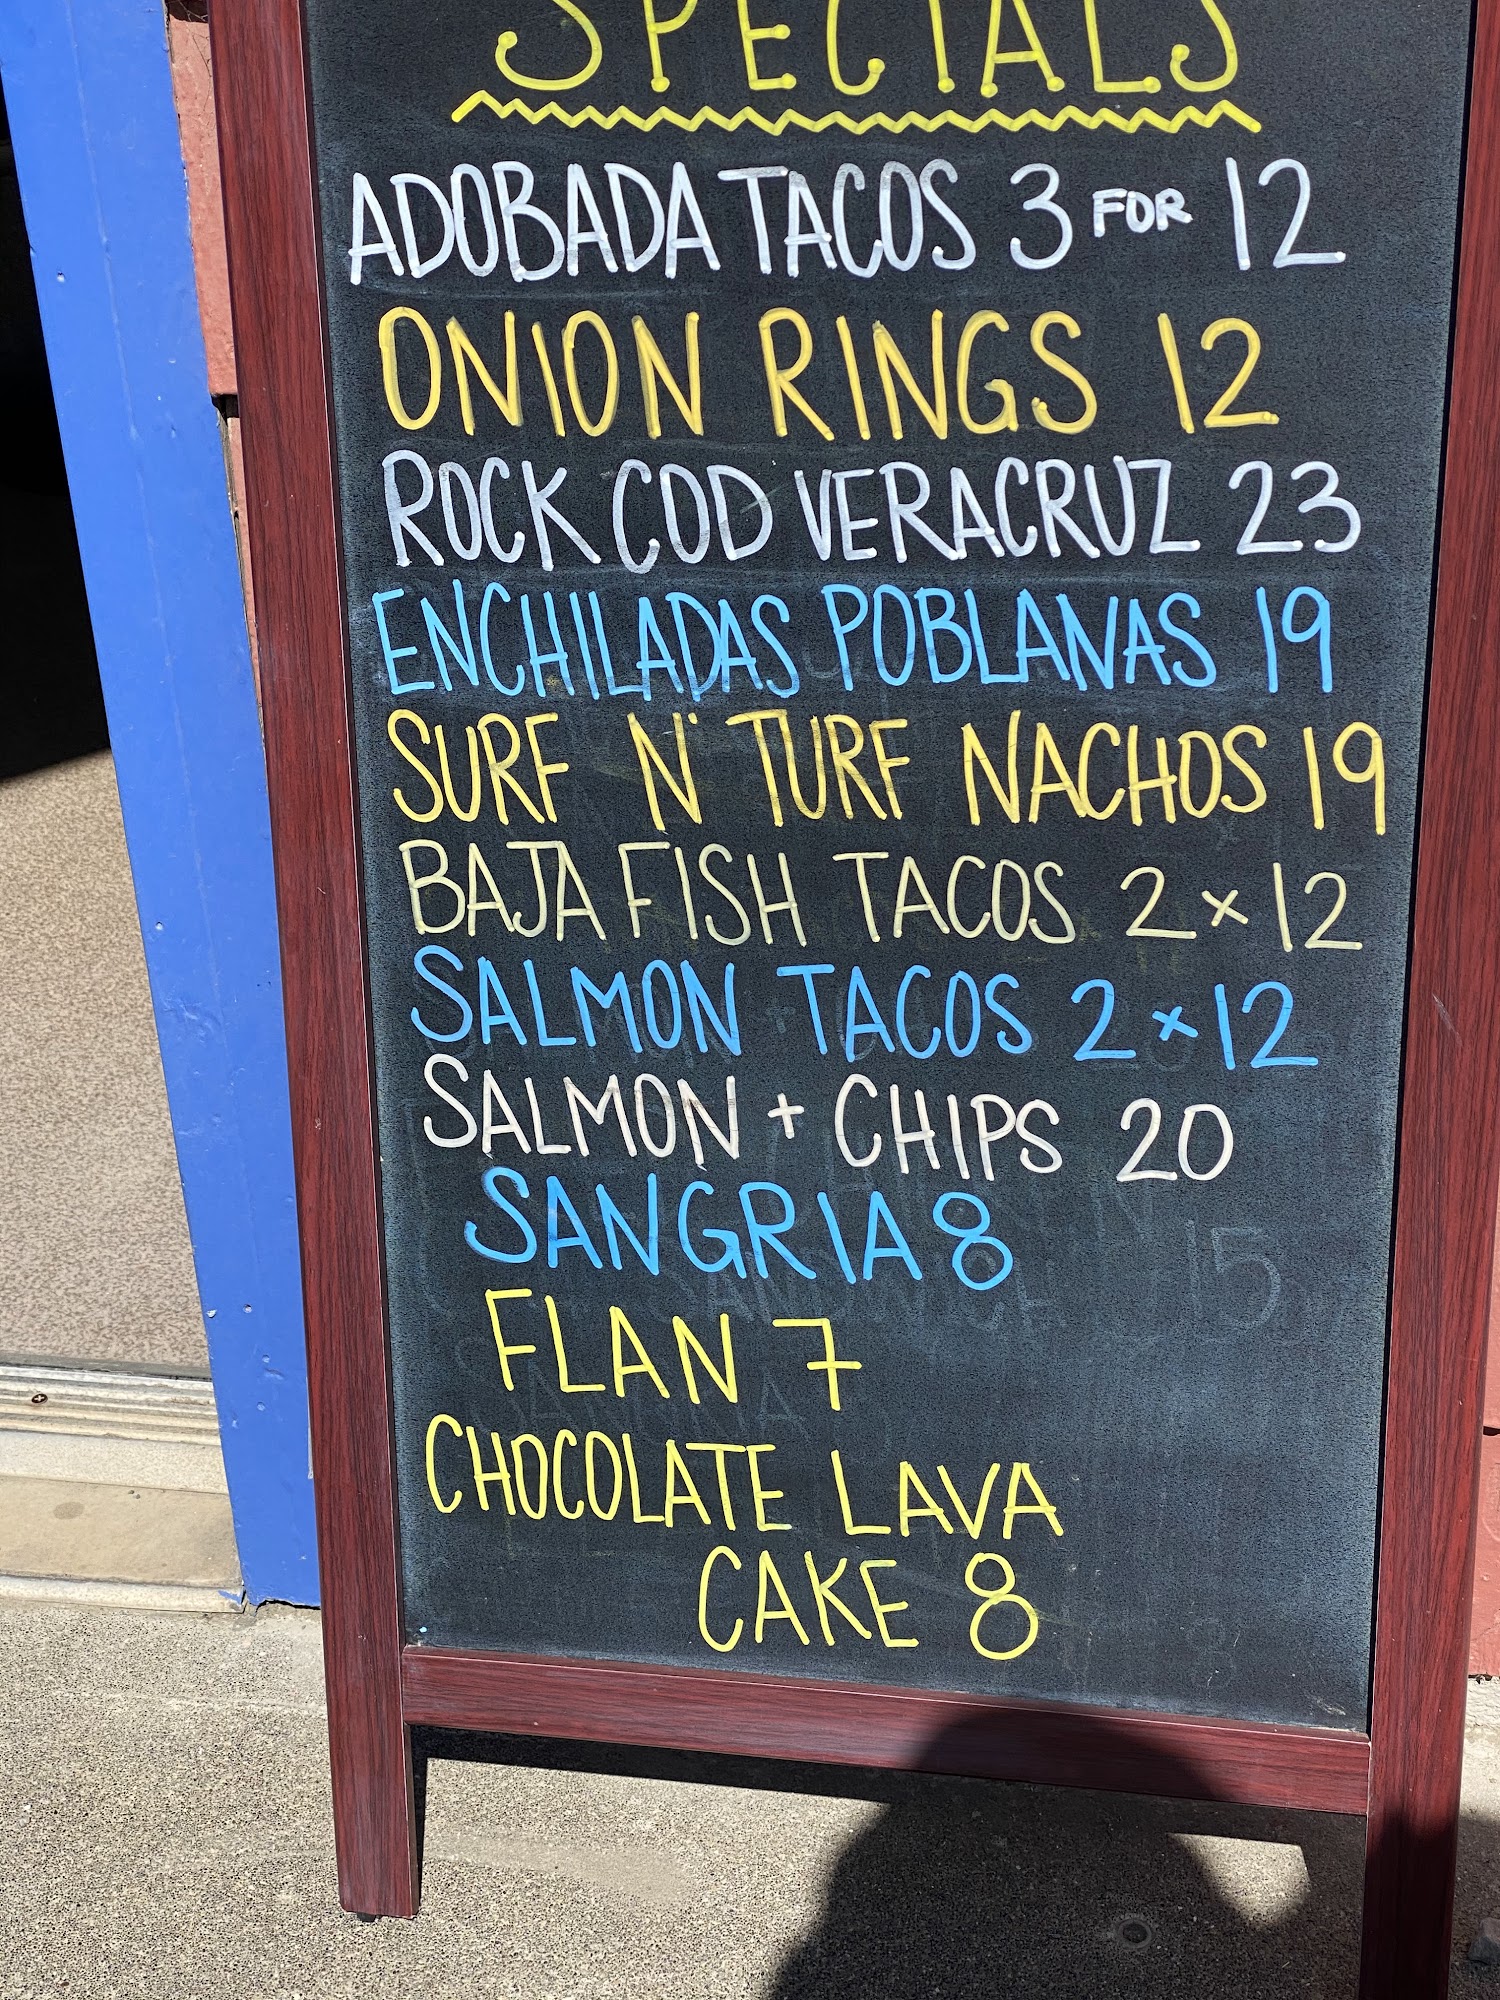 SPECIALS
ADOBADA TACOS 3 FOR 12
ONION RINGS 12
ROCK COD VERACRUZ 23
ENCHILADAS POBLANAS 19
SURF N' TURF NACHOS 19
BAJA FISH TACOS 2 × 12
SALMON TACOS 2 × 12
SALMON + CHIPS 20
SANGRIA 8
FLAN 7
CHOCOLATE LAVA
CAKE 8